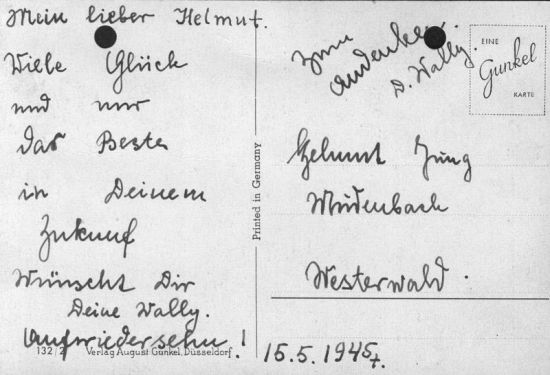 Mein lieber Helmut.
Viele Glück
und nur
Das Beste
in Deinem
Zukunf
Wünscht Dir
Deine Wally.
Aufwiedersehn!
132/2 Verlag August Gunkel, Düsseldorf.
Printed in Germany
Zum
Andenken
D. Wally.
EINE
Gunkel
KARTE
Helmut Jung
Mudenbach
Westerwald.
15.5.1945